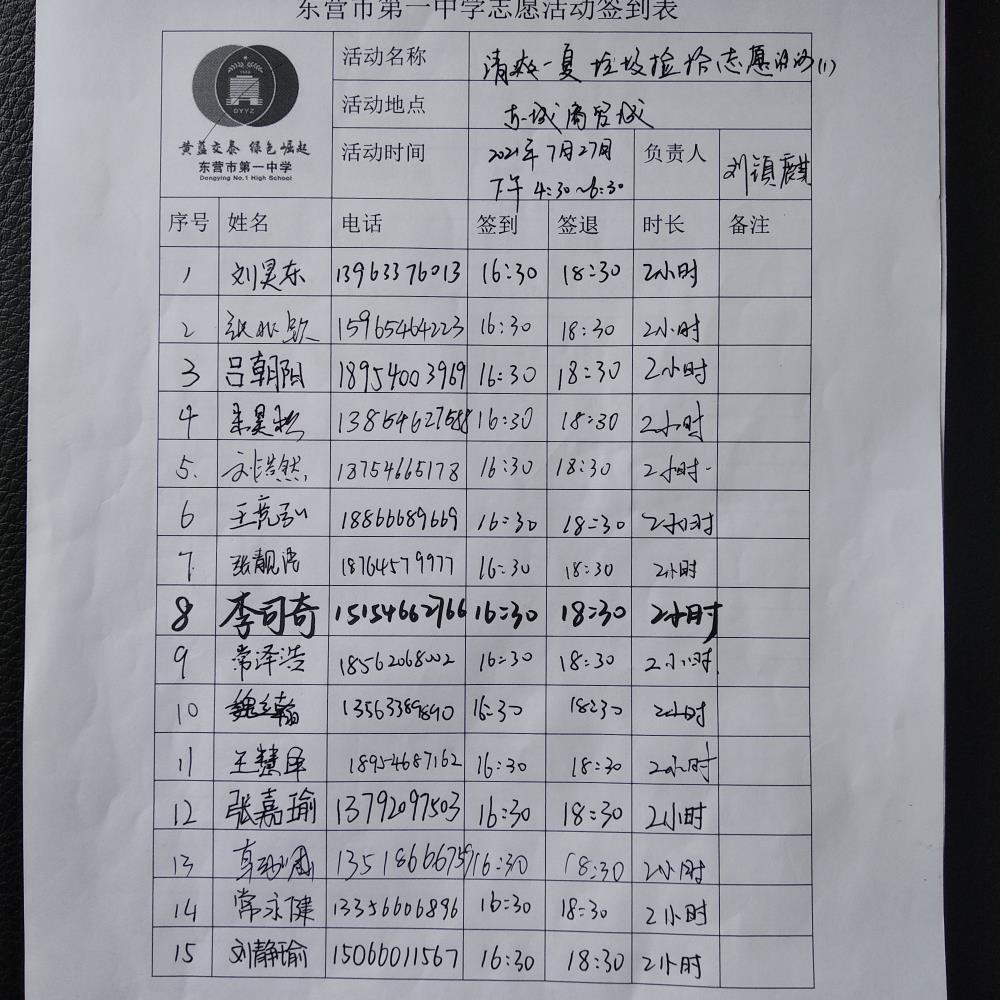 东营市第一中学志愿活动签到表
DYYZ
黄蓝交泰 绿色崛起
东营市第一中学
Dongying No.1 High School
活动名称 清爽一夏 垃圾捡拾志愿活动(1)
活动地点 东城商贸城
活动时间 2021年7月27日 下午 4:30~6:30 负责人 刘镇麒
序号 姓名 电话 签到 签退 时长 备注
1 刘昊东 13963376013 16:30 18:30 2小时
2 张 15965464223 16:30 18:30 2小时
3 吕朝阳 18954003969 16:30 18:30 2小时
4 昊 13854627588 16:30 18:30 2小时
5. 刘浩然 18754665178 16:30 18:30 2小时
6 王亮弘 18866689669 16:30 18:30 2小时
7. 张靓浩 18764579977 16:30 18:30 2小时
8 李司奇 15154662766 16:30 18:30 2小时
9 常泽浩 18562068002 16:30 18:30 2小时
10 魏立翰 13563389890 16:30 18:30 2小时
11 王慧泽 18954687162 16:30 18:30 2小时
12 张嘉瑜 13792097503 16:30 18:30 2小时
13 13518666759 16:30 18:30 2小时
14 常永健 13356606896 16:30 18:30 2小时
15 刘静瑜 15066011567 16:30 18:30 2小时